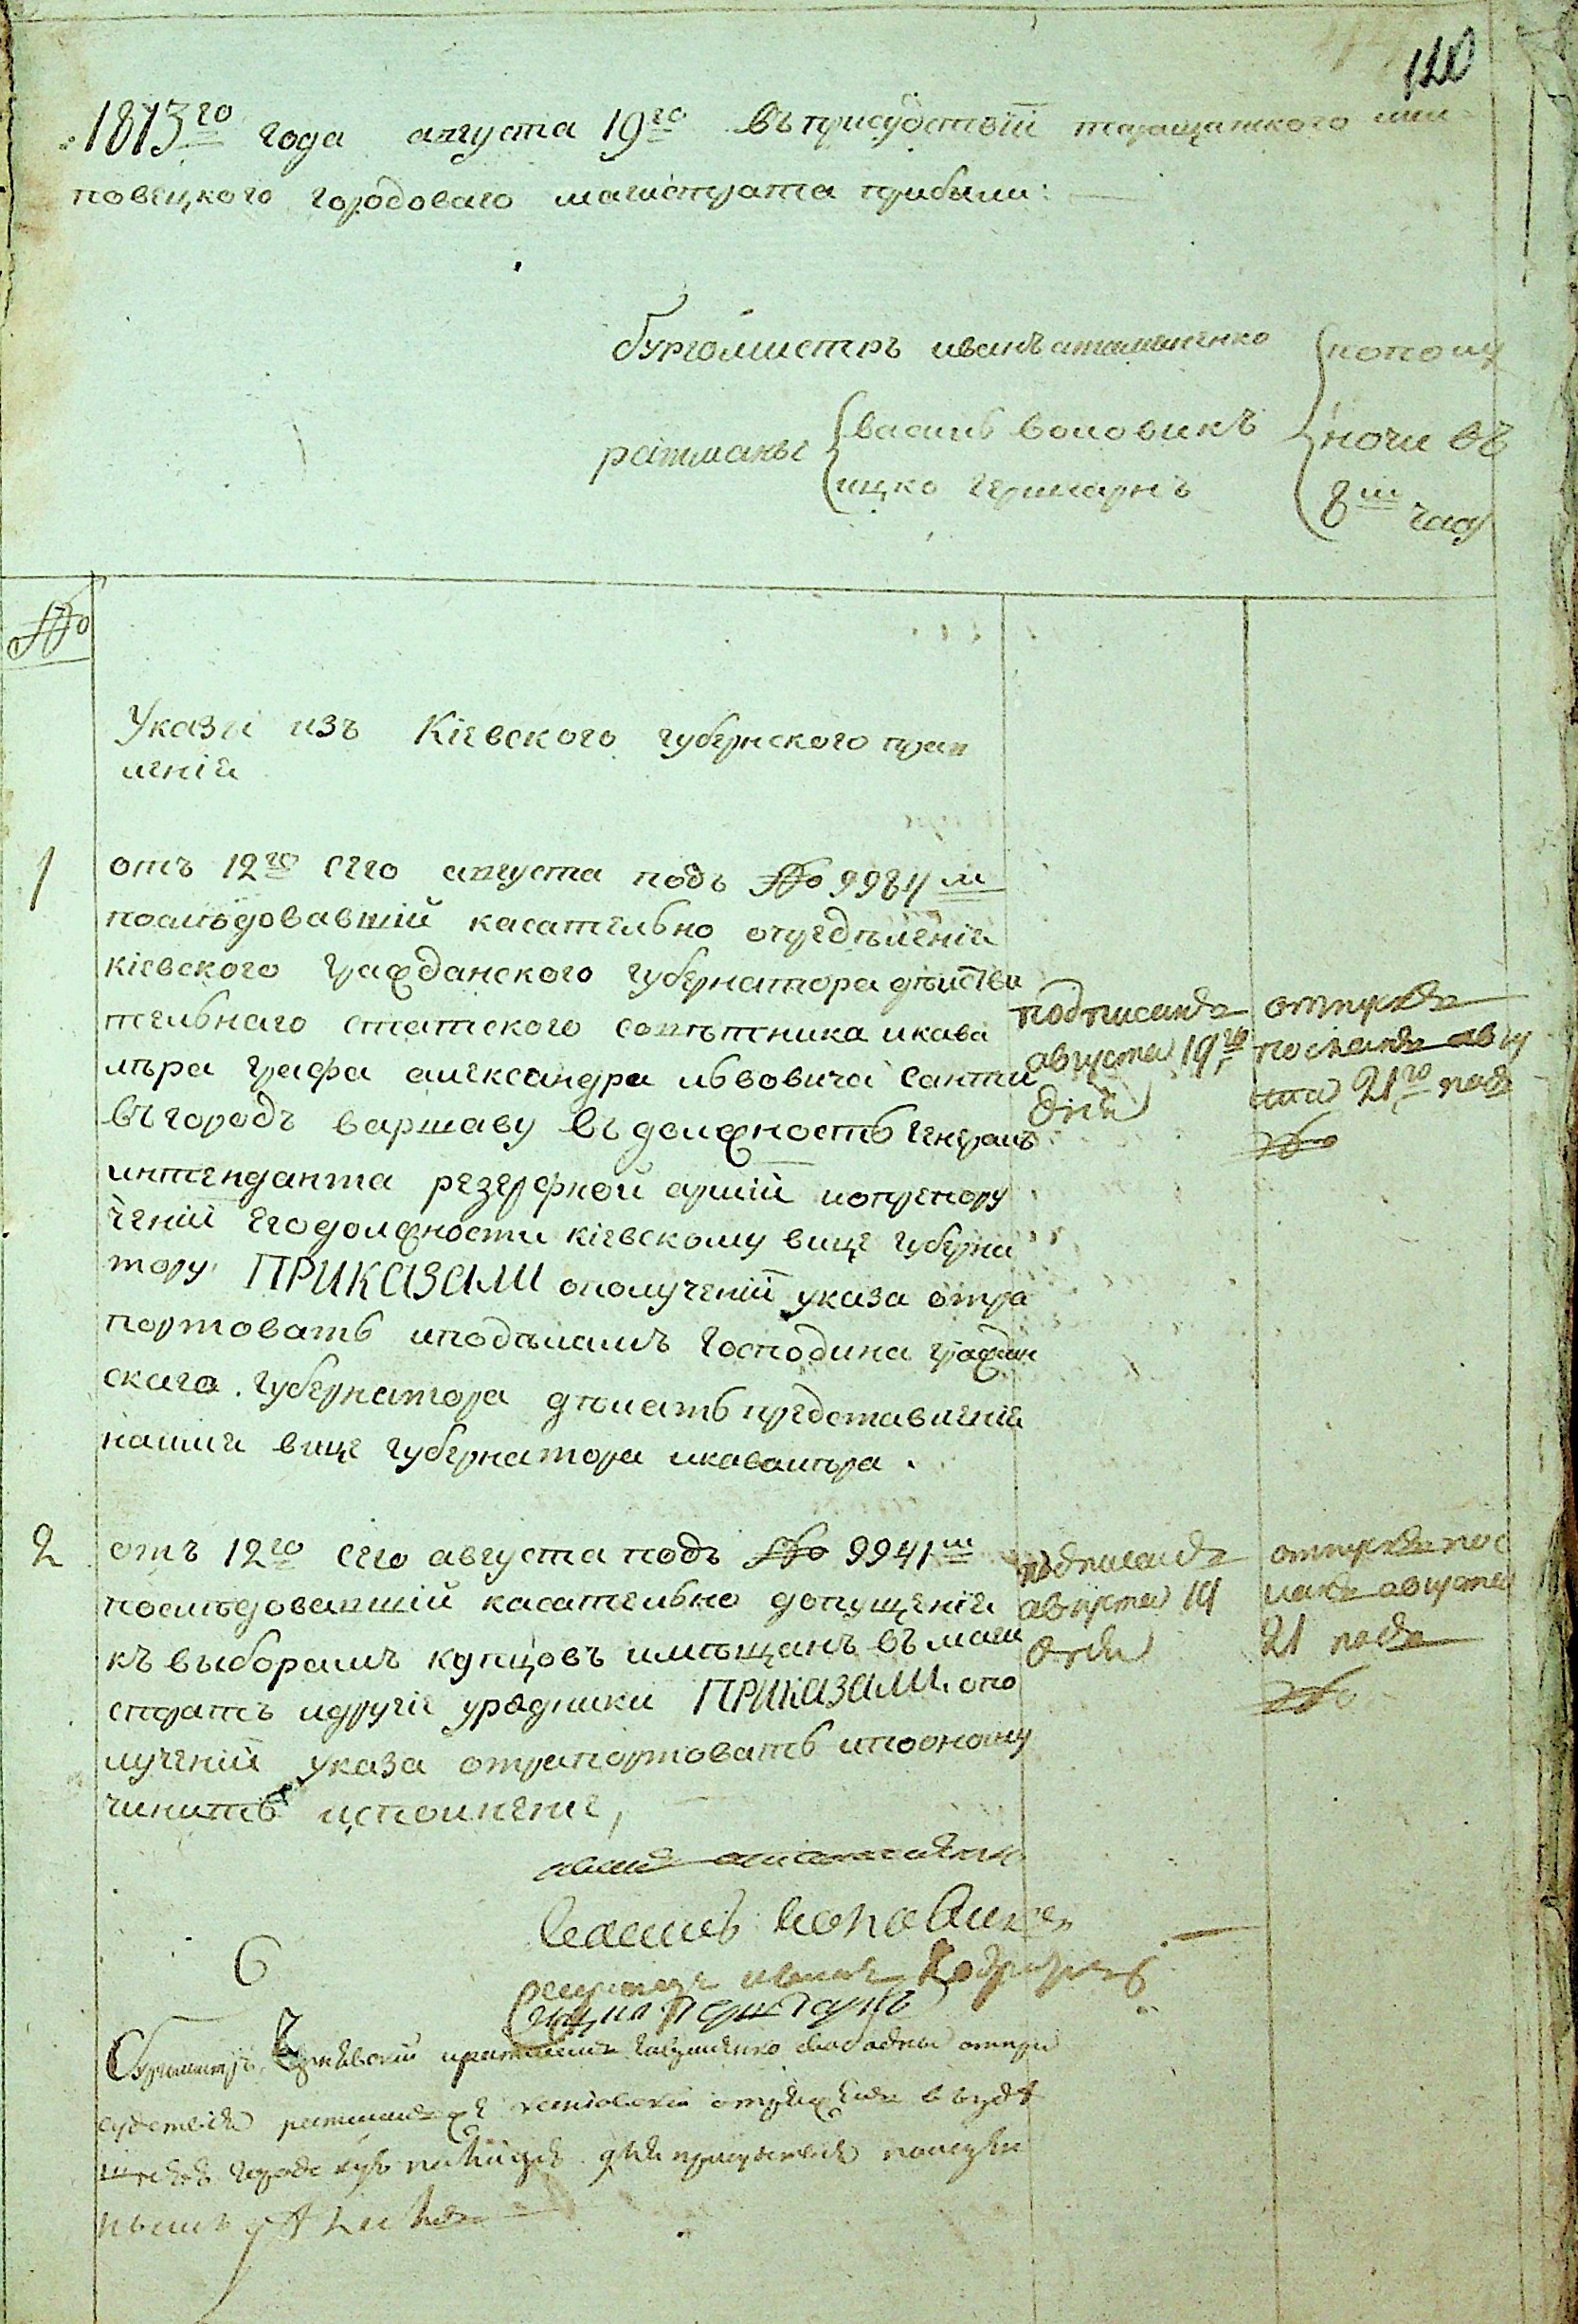 120
1813го года августа 19го въ присудствїи таращанского или
повецкого городоваго магистрата прибыли:
бургомистръ иванъ атаманенко
пополу
василь воловикъ
ночи въ
ратманы
ицко герштарнъ
8м часу
№
Указы изъ Кіевского губернского прав
ленія
1
отъ 12го сего августа подъ № 9984м
послѣдовавшій касательно опредѣленія
кіевского гражданского губернатора дѣйстви
тельнаго статского совѣтника и кава
лѣра графа александра львовича санти
въ городъ варшаву въ должность генералъ
интенданта резерфной арміи и о препору
ченіи его должности кіевскому вице губерна
тору ПРИКАЗАЛИ о полученіи указа отра
портовать и по дѣламъ господина граждан
скаго губернатора дѣлать представленія
на имя вице губернатора и кавалѣра.
подписанъ
августа 19го
дня
отпускъ
посланъ авгу
ста 21го подъ
№
2
отъ 12го сего августа подъ № 9941м
послѣдовавшій касательно допущенія
къ выборамъ купцовъ и мѣщанъ въ маги
стратъ и другіе урядники ПРИКАЗАЛИ о по
лученіи указа отрапортовать и по оному
чинить исполненіе,
подписанъ
августа 19
дня
отпускъ пос
ланъ августа
21 подъ
№
иванъ атаманенко
василь воловикъ
секретарь иванъ
ицко герштарнъ
Бургмистръ и ратманъ свободны от при
судствія ратманъ же отряженъ в уезд
городъ для присутствія